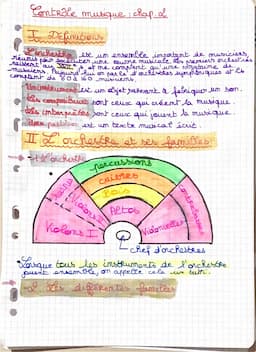 Contrôle musique : chap. 2
I Définitions
L'orchestre est un ensemble important de musiciens
réunis pour exécuter une œuvre musicale. Les premiers orchestres
musiciens. Aujourd'hui on parle d'orchestres symphoniques et ils
comptent de 80 à 60 musiciens.
Un instrument est un objet servant à fabriquer un son.
Les compositeurs sont ceux qui créent la musique.
Les interprètes sont ceux qui jouent la musique.
Une partition est un texte musical écrit.
II L'orchestre et ses familles
1) L'orchestre
percussions
cuivres
Bois
Violons II
Altos
Violons I
Violoncelles
Contrebasses
chef d'orchestres
Lorsque tous les instruments de l'orchestre
jouent ensemble, on appelle cela un tutti.
2) Les différentes familles